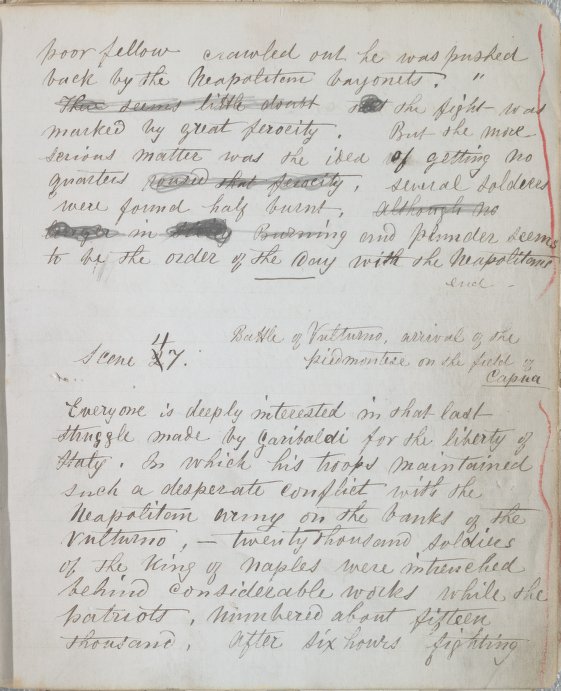 poor fellow crawled out he was pushed
back by the Neapolitan bayonets. "
There seems little doubt that the fight was
marked by great ferocity. But the more
serious matter was the idea of getting no
quarters roused that ferocity, several soldiers
were found half burnt, although no
in Burning and plunder seems
to be the order of the Day with the Neapolitans
end -
Battle of Vulturno, arrival of the
Scene 47. Piedmontese on the field of
Capua
Everyone is deeply interested in that last
struggle made by Garibaldi for the liberty of
Italy. In which his troops maintained
such a desperate conflict with the
Neapolitan army on the banks of the
Vulturno, — twenty thousand soldiers
of the King of Naples were intrenched
behind considerable works while the
patriots, numbered about fifteen
thousand. After six hours fighting